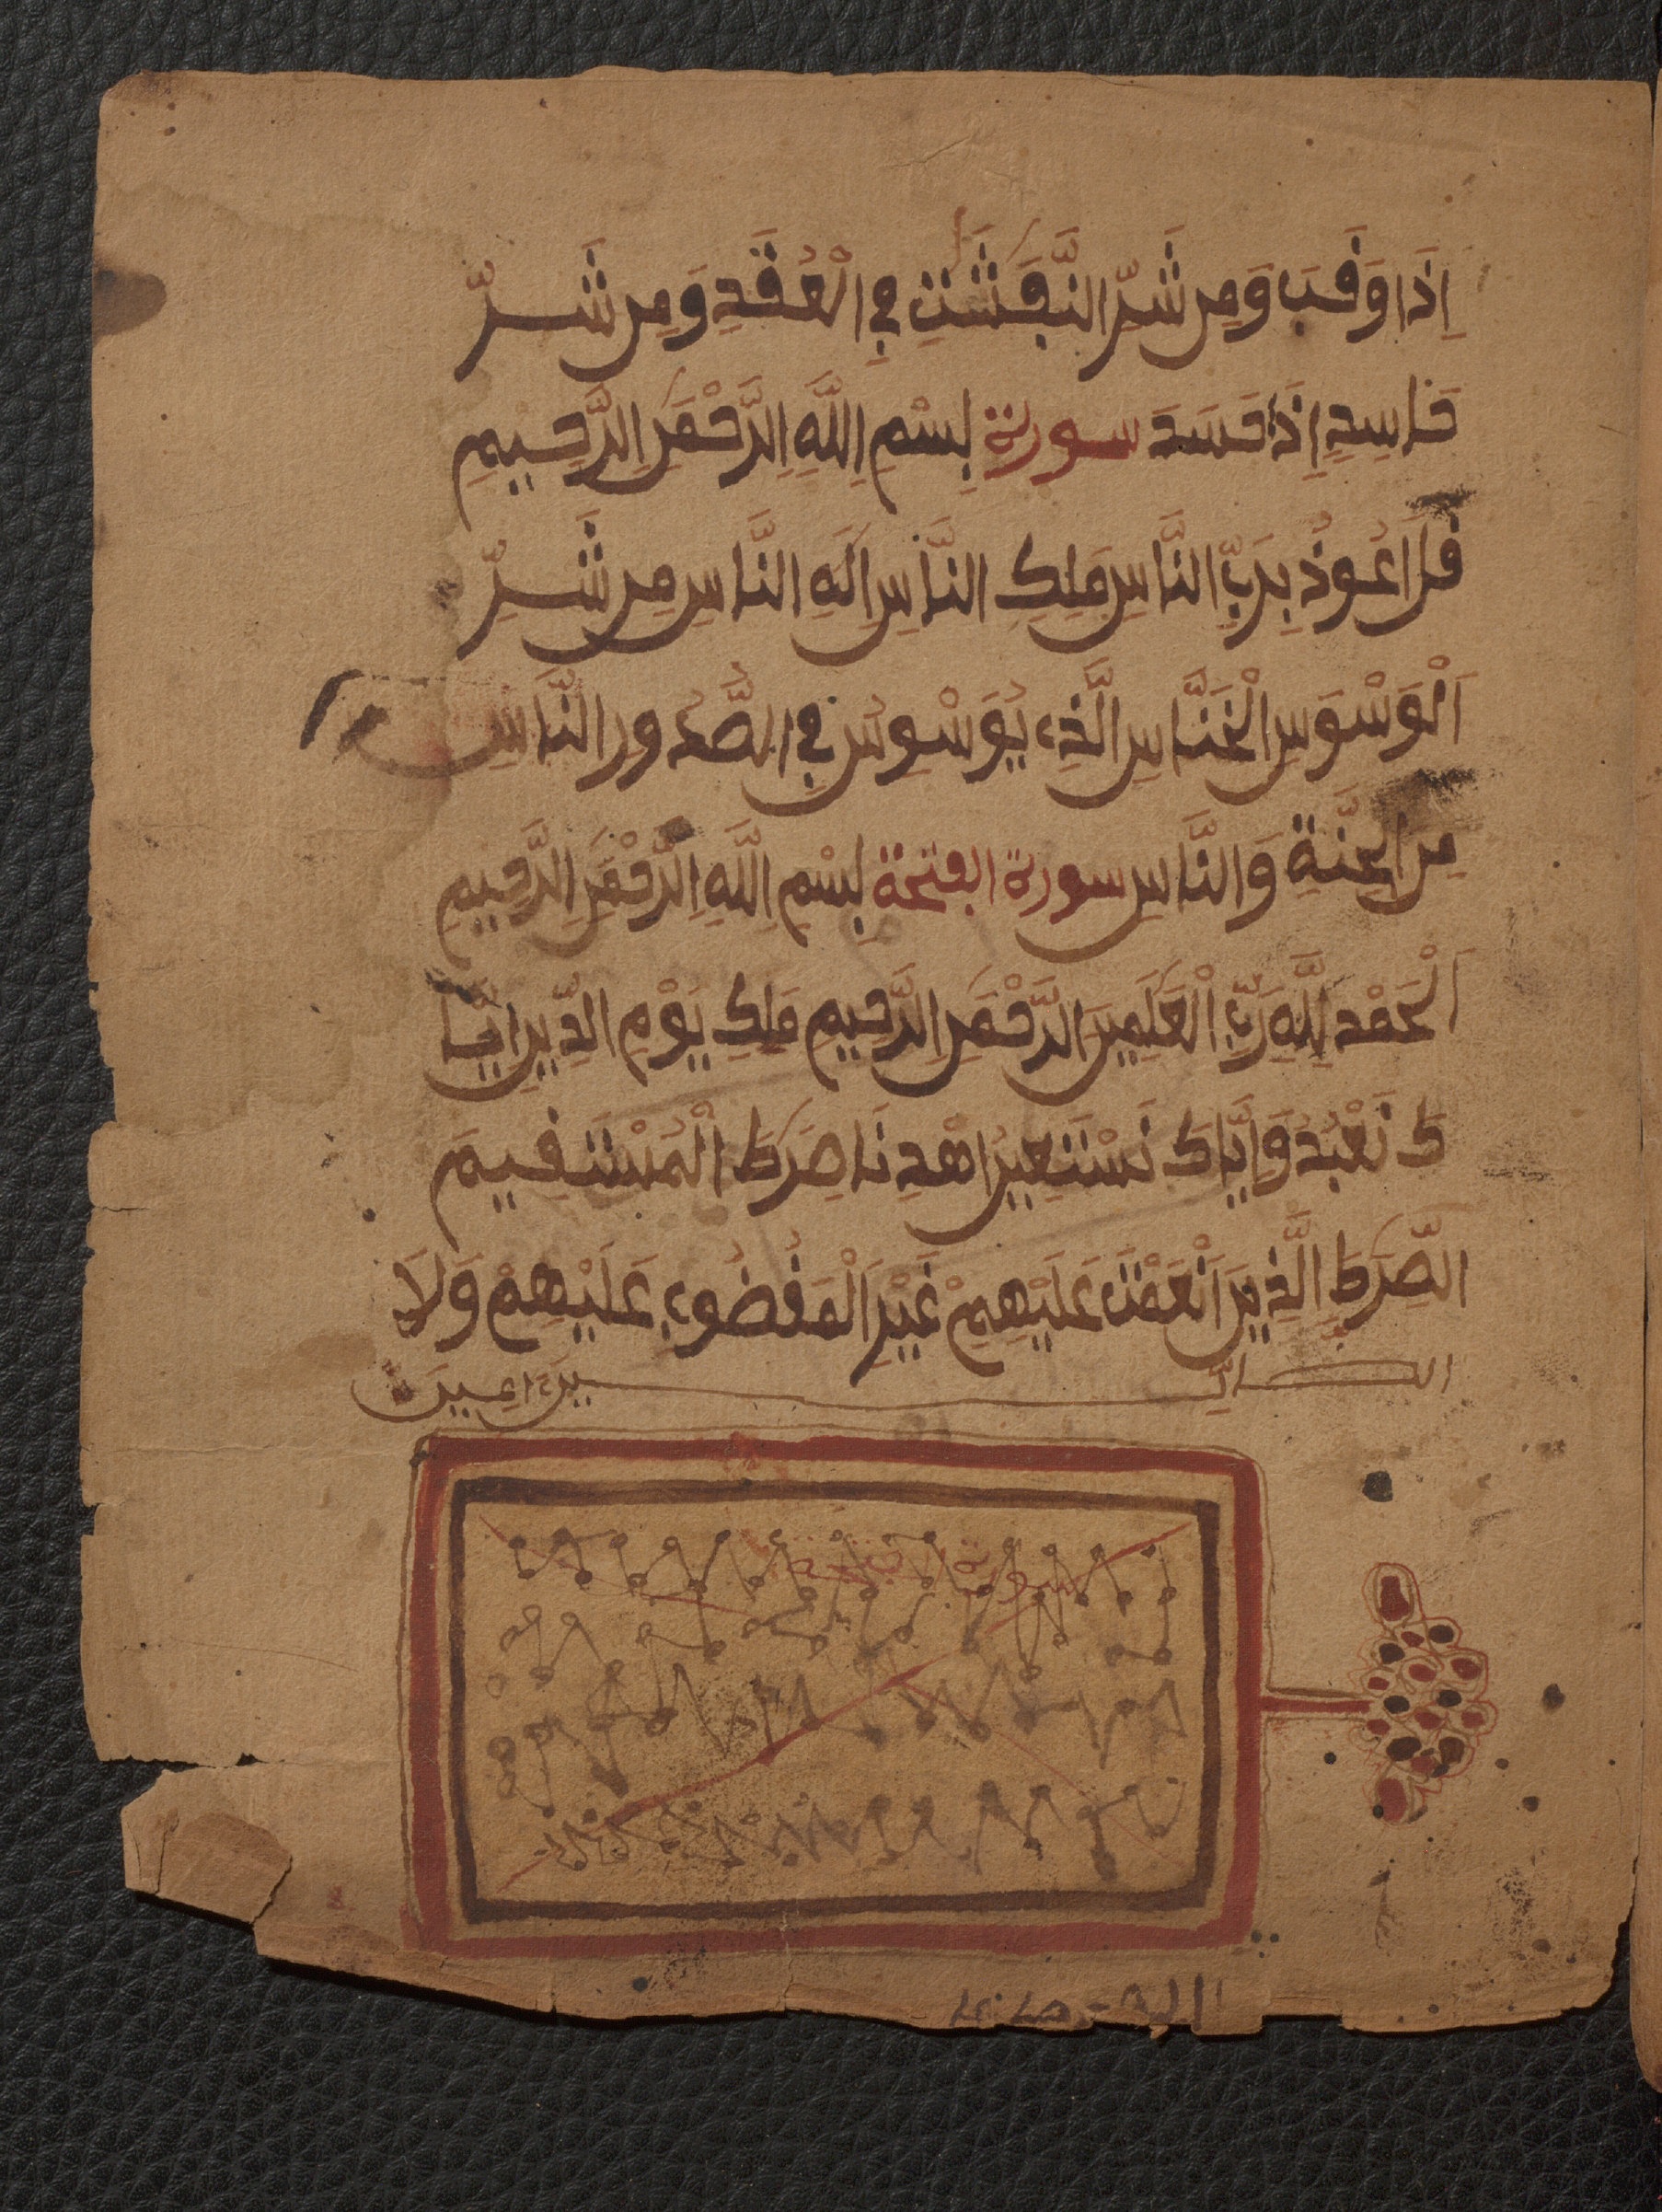 اِذَا وَقَبَ وَمِن شَرِّ النَّفَّثَتِ فِي الْعُقَدِ وَمِن شَرِّ
حَاسِدٍ اِذَا حَسَدَ سورة بِسْمِ اِللَّهِ اِلرَّحْمَنِ اِلرَّحِيمِ
قُلَ اَعُوذُ بِرَبِّ النَّاسِ مَلِكِ النَّاسِ اِلَهِ النَّاسِ مِن شَرِّ
اَلْوَسْوَسِ الْخَنَّاسِ الَّذِي يُوَسْوِسُ فِي الصُّدُور النَّاسِ
مِنَ الْجِنَّةِ وَالنَّاسِ سورة الفتحة بِسْمِ اِللَّهِ اِلرَّحْمَنِ اِلرَّحِيمِ
اَلْحَمْد لِلَّهِ رَبِّ الْعَلَمِينَ الرَّحْمَنِ الرَّحِيمِ مَلِكِ يَوْمِ الدِّينِ اِيَّا
كَ نَعْبُدُ وَإِيَّاكَ نَسْتَعِينُ اهْدِنَا صِرَطَ الْمُسْتَقِيمَ
الصِّرَطَ الَّذِينَ اَنْعَمْتَ عَلَيْهِمْ غَيْرِ اَلْمَغْضُوبِ عَلَيْهِمْ وَلَا
الضَّالِّينَ امِين